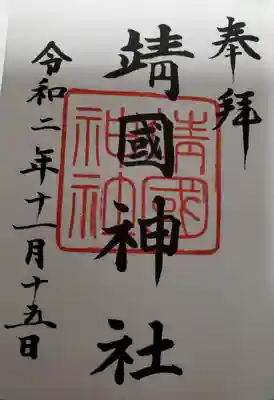 奉拝
靖國神社
靖國
神社
令和二年十一月十五日